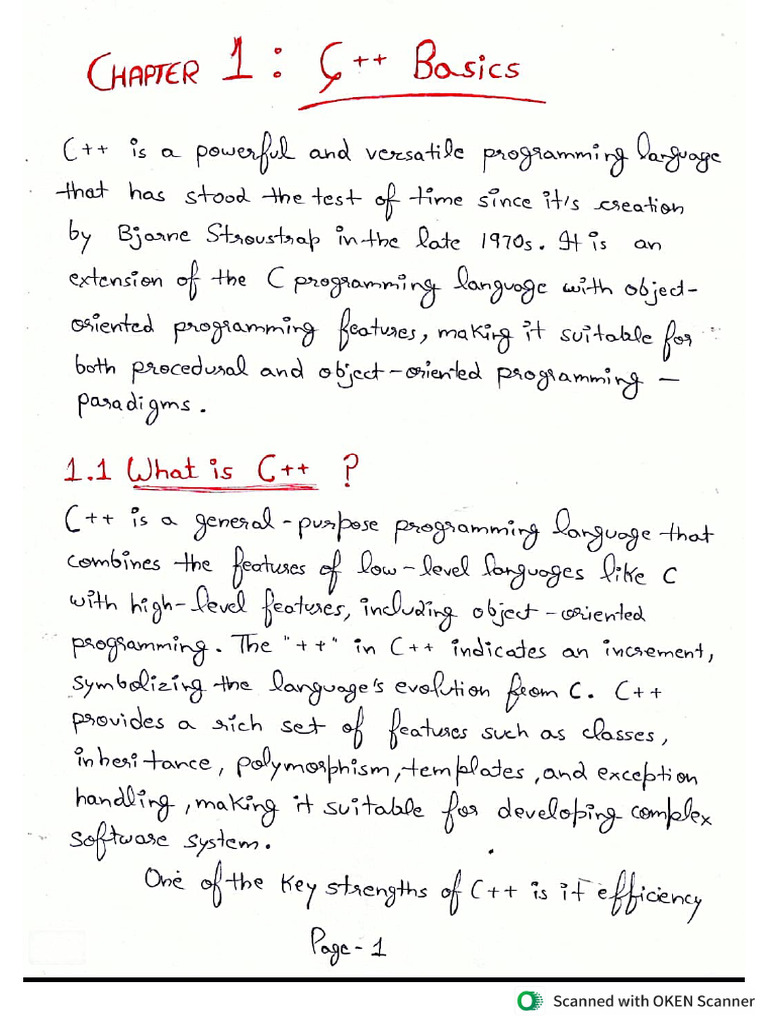 CHAPTER 1 : C++ Basics
C++ is a powerful and versatile programming language
that has stood the test of time since it's creation
by Bjarne Stroustrap in the late 1970s. It is an
extension of the C programming language with object-
oriented programming features, making it suitable for
both procedural and object-oriented programming -
paradigms.
1.1 What is C++ ?
C++ is a general-purpose programming language that
combines the features of low-level languages like C
with high-level features, including object-oriented
programming. The "++" in C++ indicates an increment,
symbolizing the language's evolution from C. C++
provides a rich set of features such as classes,
inheritance, polymorphism, templates, and exception
handling, making it suitable for developing complex
software system.
One of the key strengths of C++ is it efficiency
Page-1
Scanned with OKEN Scanner